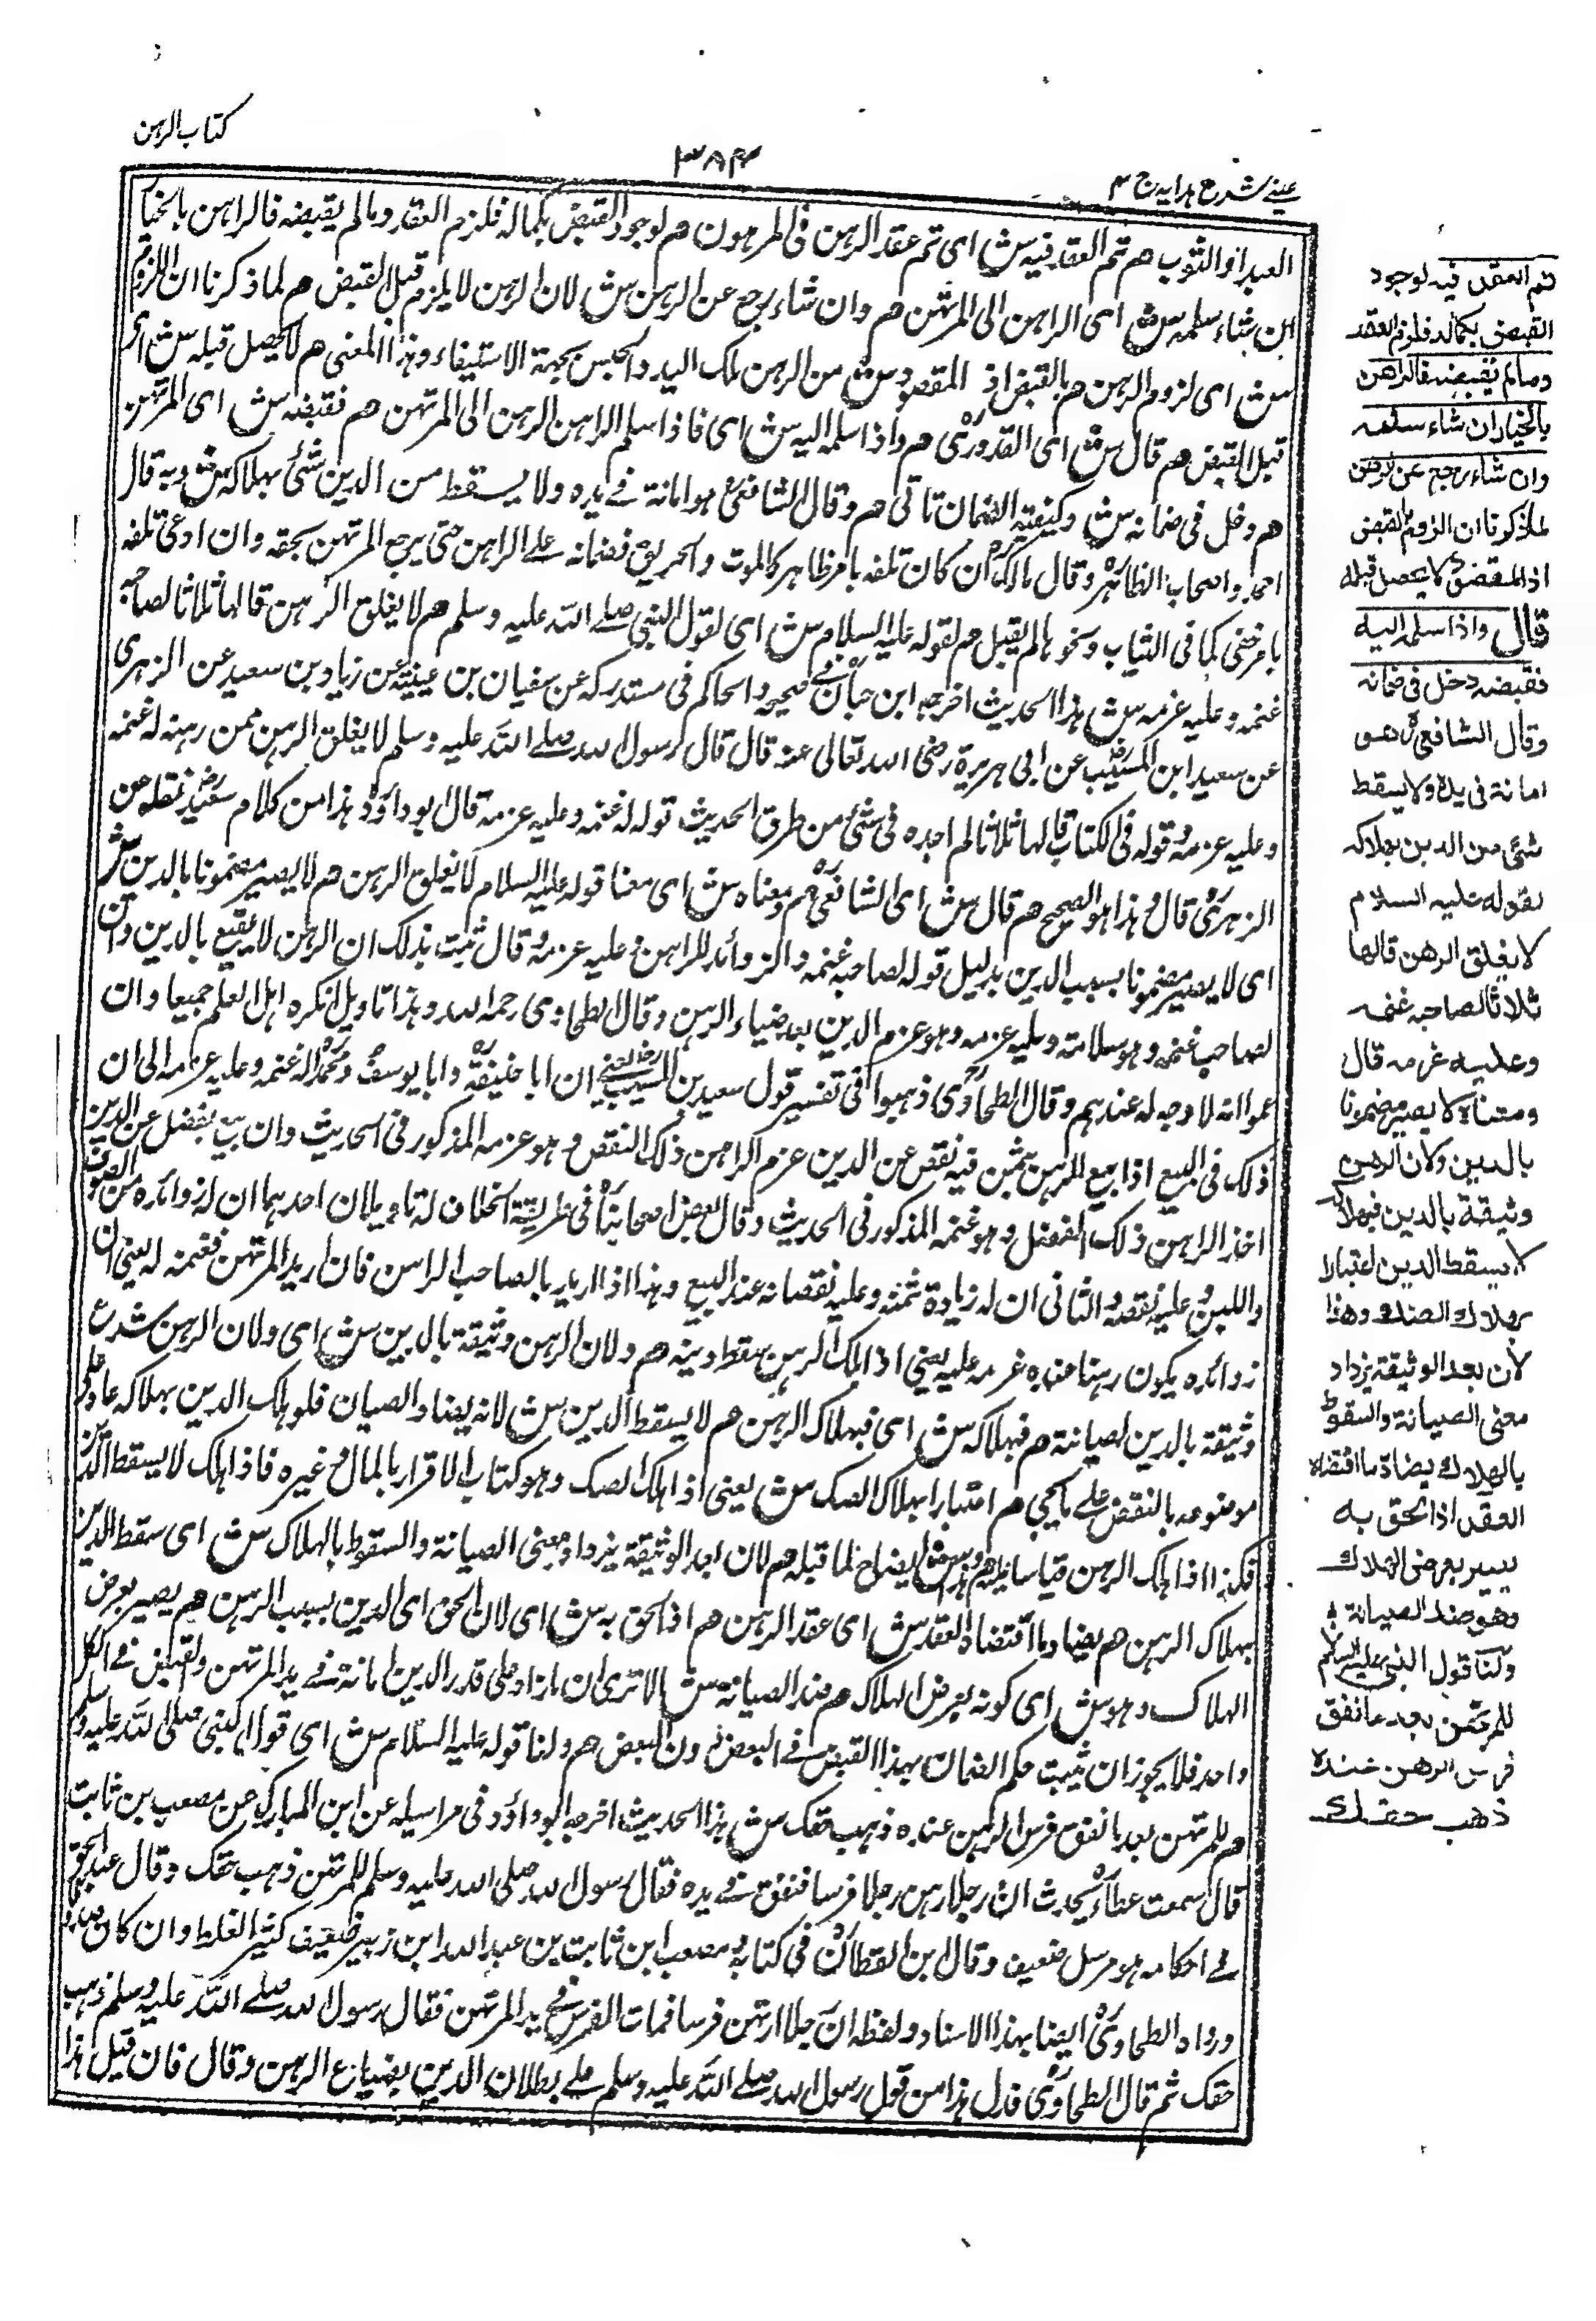 كتاب الرهن
٣٨٤
عينى شرح هدايه ج ٤
العبد او الثوب هم تم العقد فيه ش اى تم عقد الرهن فى المرهون هم لوجود القبض بكماله فلزم العقد وما لم يقبضه فالراهن بالخيار
ان شاء سلمه ش اى الراهن الى المرتهن هم وان شاء رجع عن الرهن ش لان الرهن لا يلزم قبل القبض هم لما ذكرنا ان اللزوم
ش اى لزوم الرهن هم بالقبض اذ المقصود ش من الرهن ملك اليد والحبس بجهة الاستيفاء وهذا المعنى هم لا يحصل قبله ش اى
قبل القبض هم قال ش اى القدورى هم واذا سلمه اليه ش اى فاذا سلم الراهن الرهن الى المرتهن هم فقبضه ش اى المرتهن
هم دخل فى ضمانه ش وكيفية الضمان تأتى هم وقال الشافعى هو امانة فى يده ولا يسقط من الدين شئ بهلاكه ش وبه قال
احمد واصحاب الظاهر وقال مالك ان كان تلفه بامر ظاهر كالموت والحريق فضمانه على الراهن حتى يرجع المرتهن بحقه وان ادعى تلفه
بامر خفى كما فى الثياب ونحوها لم يقبل هم لقوله عليه السلام ش اى لقول النبى صلى الله عليه وسلم هم لا يغلق الرهن قالها ثلاثا لصاحبه
غنمه وعليه غرمه ش هذا الحديث اخرجه ابن حبان فى صحيحه والحاكم فى مستدركه عن سفيان بن عيينة عن زياد بن سعيد عن الزهرى
عن سعيد ابن المسيب عن ابى هريرة رضى الله تعالى عنه قال قال رسول الله صلى الله عليه وسلم لا يغلق الرهن ممن رهنه له غنمه
وعليه غرمه وقوله فى الكتاب قالها ثلاثا لم اجده فى شئ من طرق الحديث قوله له غنمه وعليه غرمه قال ابو داؤد هذا من كلام سعيد نقله عن
الزهرى قال وهذا هو الصحيح هم قال ش اى الشافعى هم ومعناه ش اى معنا قوله عليه السلام لا يغلق الرهن هم لا يصير مضمونا بالدين ش
اى لا يصير مضمونا بسبب الدين بدليل قوله لصاحبه غنمه والزوائد للراهن وعليه غرمه وقال ثبت بذلك ان الرهن لا يضيع بالدين وان
لصاحبه غنمه وهو سلامته وعليه غرمه وهو غرم الدين بعد ضياع الرهن وقال الطحاوى رحمه الله وهذا تاويل انكره اهل العلم جميعا وان
عموا انه لا وجه له عندهم وقال الطحاوى ذهبوا فى تفسير قول سعيد بن المسيب ان ابا حنيفة وابا يوسف ومحمد له غنمه وعليه غرمه الى ان
ذلك فى البيع اذا بيع الرهن بثمن فيه نقص عن الدين غرم الراهن ذلك النقص وهو غرمه المذكور فى الحديث وان بيع بفضل عن الدين
اخذ الراهن ذلك الفضل وهو غنمه المذكور فى الحديث وقال بعض اصحابنا فى طريقة الخلاف له تاويلان احدهما ان له زوائده من الصوف
واللبن وعليه نقصه والثانى ان له زيادة ثمنه وعليه نقصانه عند البيع وهذا اذا اريد بالصاحب الراهن فان اريد المرتهن فغنمه له يعنى ان
زوائده يكون رهنا عنده غرمه عليه يعنى اذا هلك الرهن سقط دينه هم ولان الرهن وثيقة بالدين ش اى ولان الرهن شرع
وثيقة بالدين لصيانته هم فبهلاكه ش اى فبهلاك الرهن هم لا يسقط الدين ش لانه يضاد الصيان فلو هلك الدين بهلاكه عاد على
موضوعه بالنقض على ما يجئ هم اعتبارا بهلاك الصك ش يعنى اذا هلك الصك وهو كتاب الاقرار بالمال وغيره فاذا هلك لا يسقط الدين
فكذا اذا هلك الرهن قياسا عليه هم وهذا ش ايضاح لما قبله هم لان بعد الوثيقة يزداد معنى الصيانة والسقوط بالهلاك ش اى سقط الدين
بهلاك الرهن هم يضاد ما اقتضاه العقد ش اى عقد الرهن هم اذ الحق به ش اى لان الحق اى الدين بسبب الرهن هم يصير بعرض
الهلاك وهو ش اى كونه بعرض الهلاك هم ضد الصيانة ش الا ترى ان ما زاد على قدر الدين امانة فى يد المرتهن والقبض فى الكل
واحد فلا يجوز ان يثبت حكم الضمان بهذا القبض فى البعض دون البعض هم ولنا قوله عليه السلام ش اى قول النبى صلى الله عليه وسلم
هم للمرتهن بعد ما نفق فرس الرهن عنده ذهب حقك ش هذا الحديث اخرجه ابو داؤد فى مراسيله عن ابن المبارك عن مصعب بن ثابت
قال سمعت عطاء يحدث ان رجلا رهن رجلا فرسا فنفق فى يده فقال رسول الله صلى الله عليه وسلم للمرتهن ذهب حقك وقال عبد الحق
فى احكامه هو مرسل ضعيف وقال ابن القطان فى كتابه ومصعب ابن ثابت بن عبد الله ابن زبير ضعيف كثير الغلط وان كان صدوقا
ورواه الطحاوى ايضا بهذا الاسناد ولفظه ان رجلا ارتهن فرسا فمات الفرس فى يد المرتهن فقال رسول الله صلى الله عليه وسلم ذهب
حقك ثم قال الطحاوى فدل هذا من قول رسول الله صلى الله عليه وسلم على بطلان الدين بضياع الرهن وقال فان قيل هذا
تم العقد فيه لوجود
القبض بكماله فلزم العقد
وما لم يقبضه فالراهن
بالخيار ان شاء سلمه
وان شاء رجع عن الرهن
لما ذكرنا ان اللزوم بالقبض
اذ المقصود لا يحصل قبله
قال واذا سلمه اليه
فقبضه دخل فى ضمانه
وقال الشافعى هو
امانة فى يده ولا يسقط
شئ من الدين بهلاكه
لقوله عليه السلام
لا يغلق الرهن قالها
ثلاثا لصاحبه غنمه
وعليه غرمه قال
ومعناه لا يصير مضمونا
بالدين ولان الرهن
وثيقة بالدين فبهلاكه
لا يسقط الدين اعتبارا
بهلاك الصك وهذا
لان بعد الوثيقة يزداد
معنى الصيانة والسقوط
بالهلاك يضاد ما اقتضاه
العقد اذ الحق به
يصير بعرض الهلاك
وهو ضد الصيانة
ولنا قول النبى عليه السلام
للمرتهن بعد ما نفق
فرس الرهن عنده
ذهب حقك